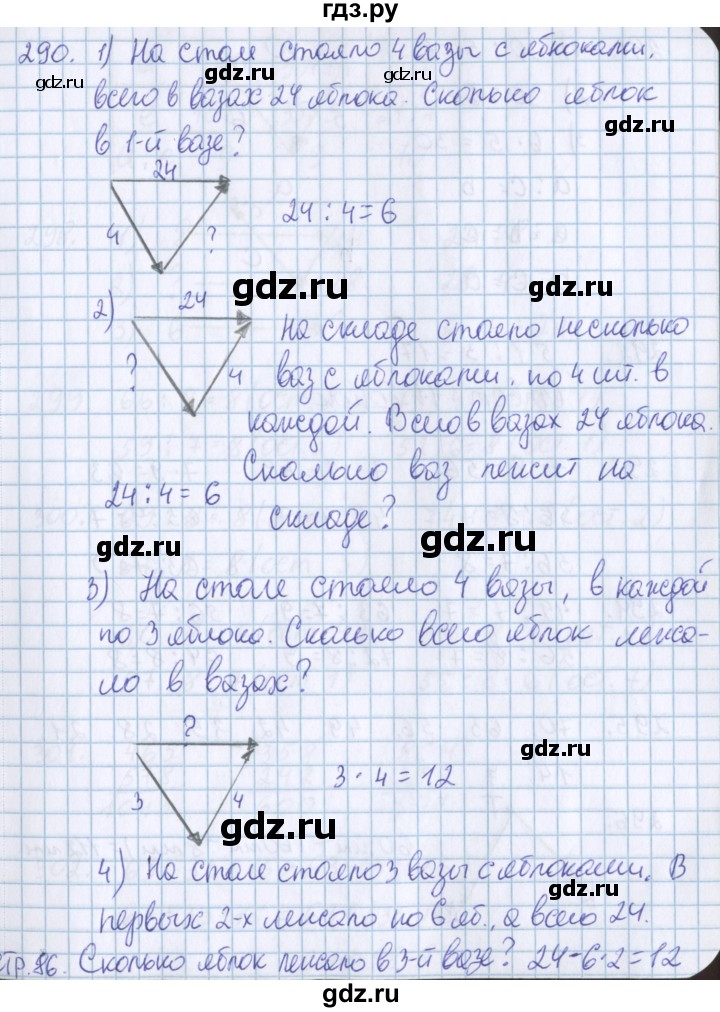 гдз.ру
290. 1) На столе стояло 4 вазы с яблоками.
gdz.ru gdz.ru gdz.ru
всего в вазах 24 яблока. Сколько яблок
gdz.ru
в 1-й вазе?
24
24 : 4 = 6
4 ?
gdz.ru gdz.ru
2) 24
На складе стояло несколько
? 4 ваз с яблоками, по 4 шт. в
каждой. Всего в вазах 24 яблока.
Сколько ваз лежит на
24 : 4 = 6
складе?
gdz.ru gdz.ru
3) На столе стояло 4 вазы, в каждой
по 3 яблока. Сколько всего яблок лежа-
gdz.ru
ло в вазах?
?
gdz.ru
3 4 3 · 4 = 12
gdz.ru
4) На столе стояло 3 вазы с яблоками. В
gdz.ru
первых 2-х лежало по 6 яб., а всего 24.
Сколько яблок лежало в 3-й вазе? 24-6·2=12
тр.86. gdz.ru gdz.ru
gdz.ru